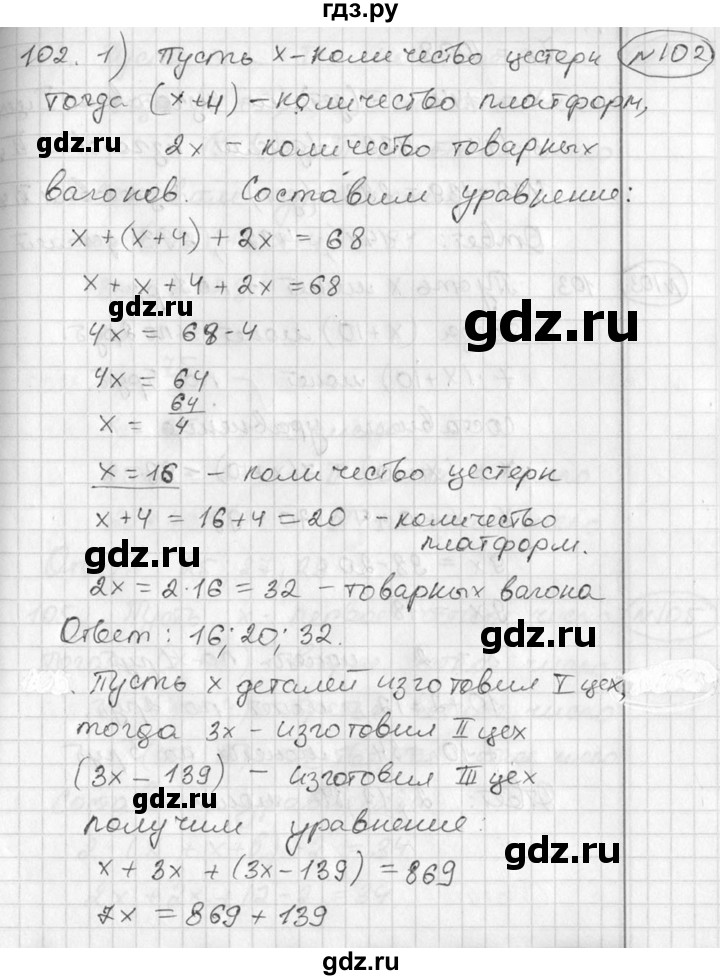 гдз.ру
102. 1) Пусть x - количество цестерн №102
тогда (x+4) - количество платформ,
gdz.ru
2x - количество товарных
вагонов. Составим уравнение:
gdz.ru
x + (x+4) + 2x = 68
x + x + 4 + 2x = 68
gdz.ru
gdz.ru
4x = 68-4
4x = 64
x = 64/4
x = 16 - количество цестерн
x+4 = 16+4 = 20 - количество
платформ.
gdz.ru
gdz.ru
2x = 2·16 = 32 - товарных вагона
Ответ: 16; 20; 32.
Пусть x деталей изготовил I цех,
тогда 3x - изготовил II цех
(3x - 139) - изготовил III цех
gdz.ru
получим уравнение:
gdz.ru
x + 3x + (3x-139) = 869
7x = 869 + 139
gdz.ru